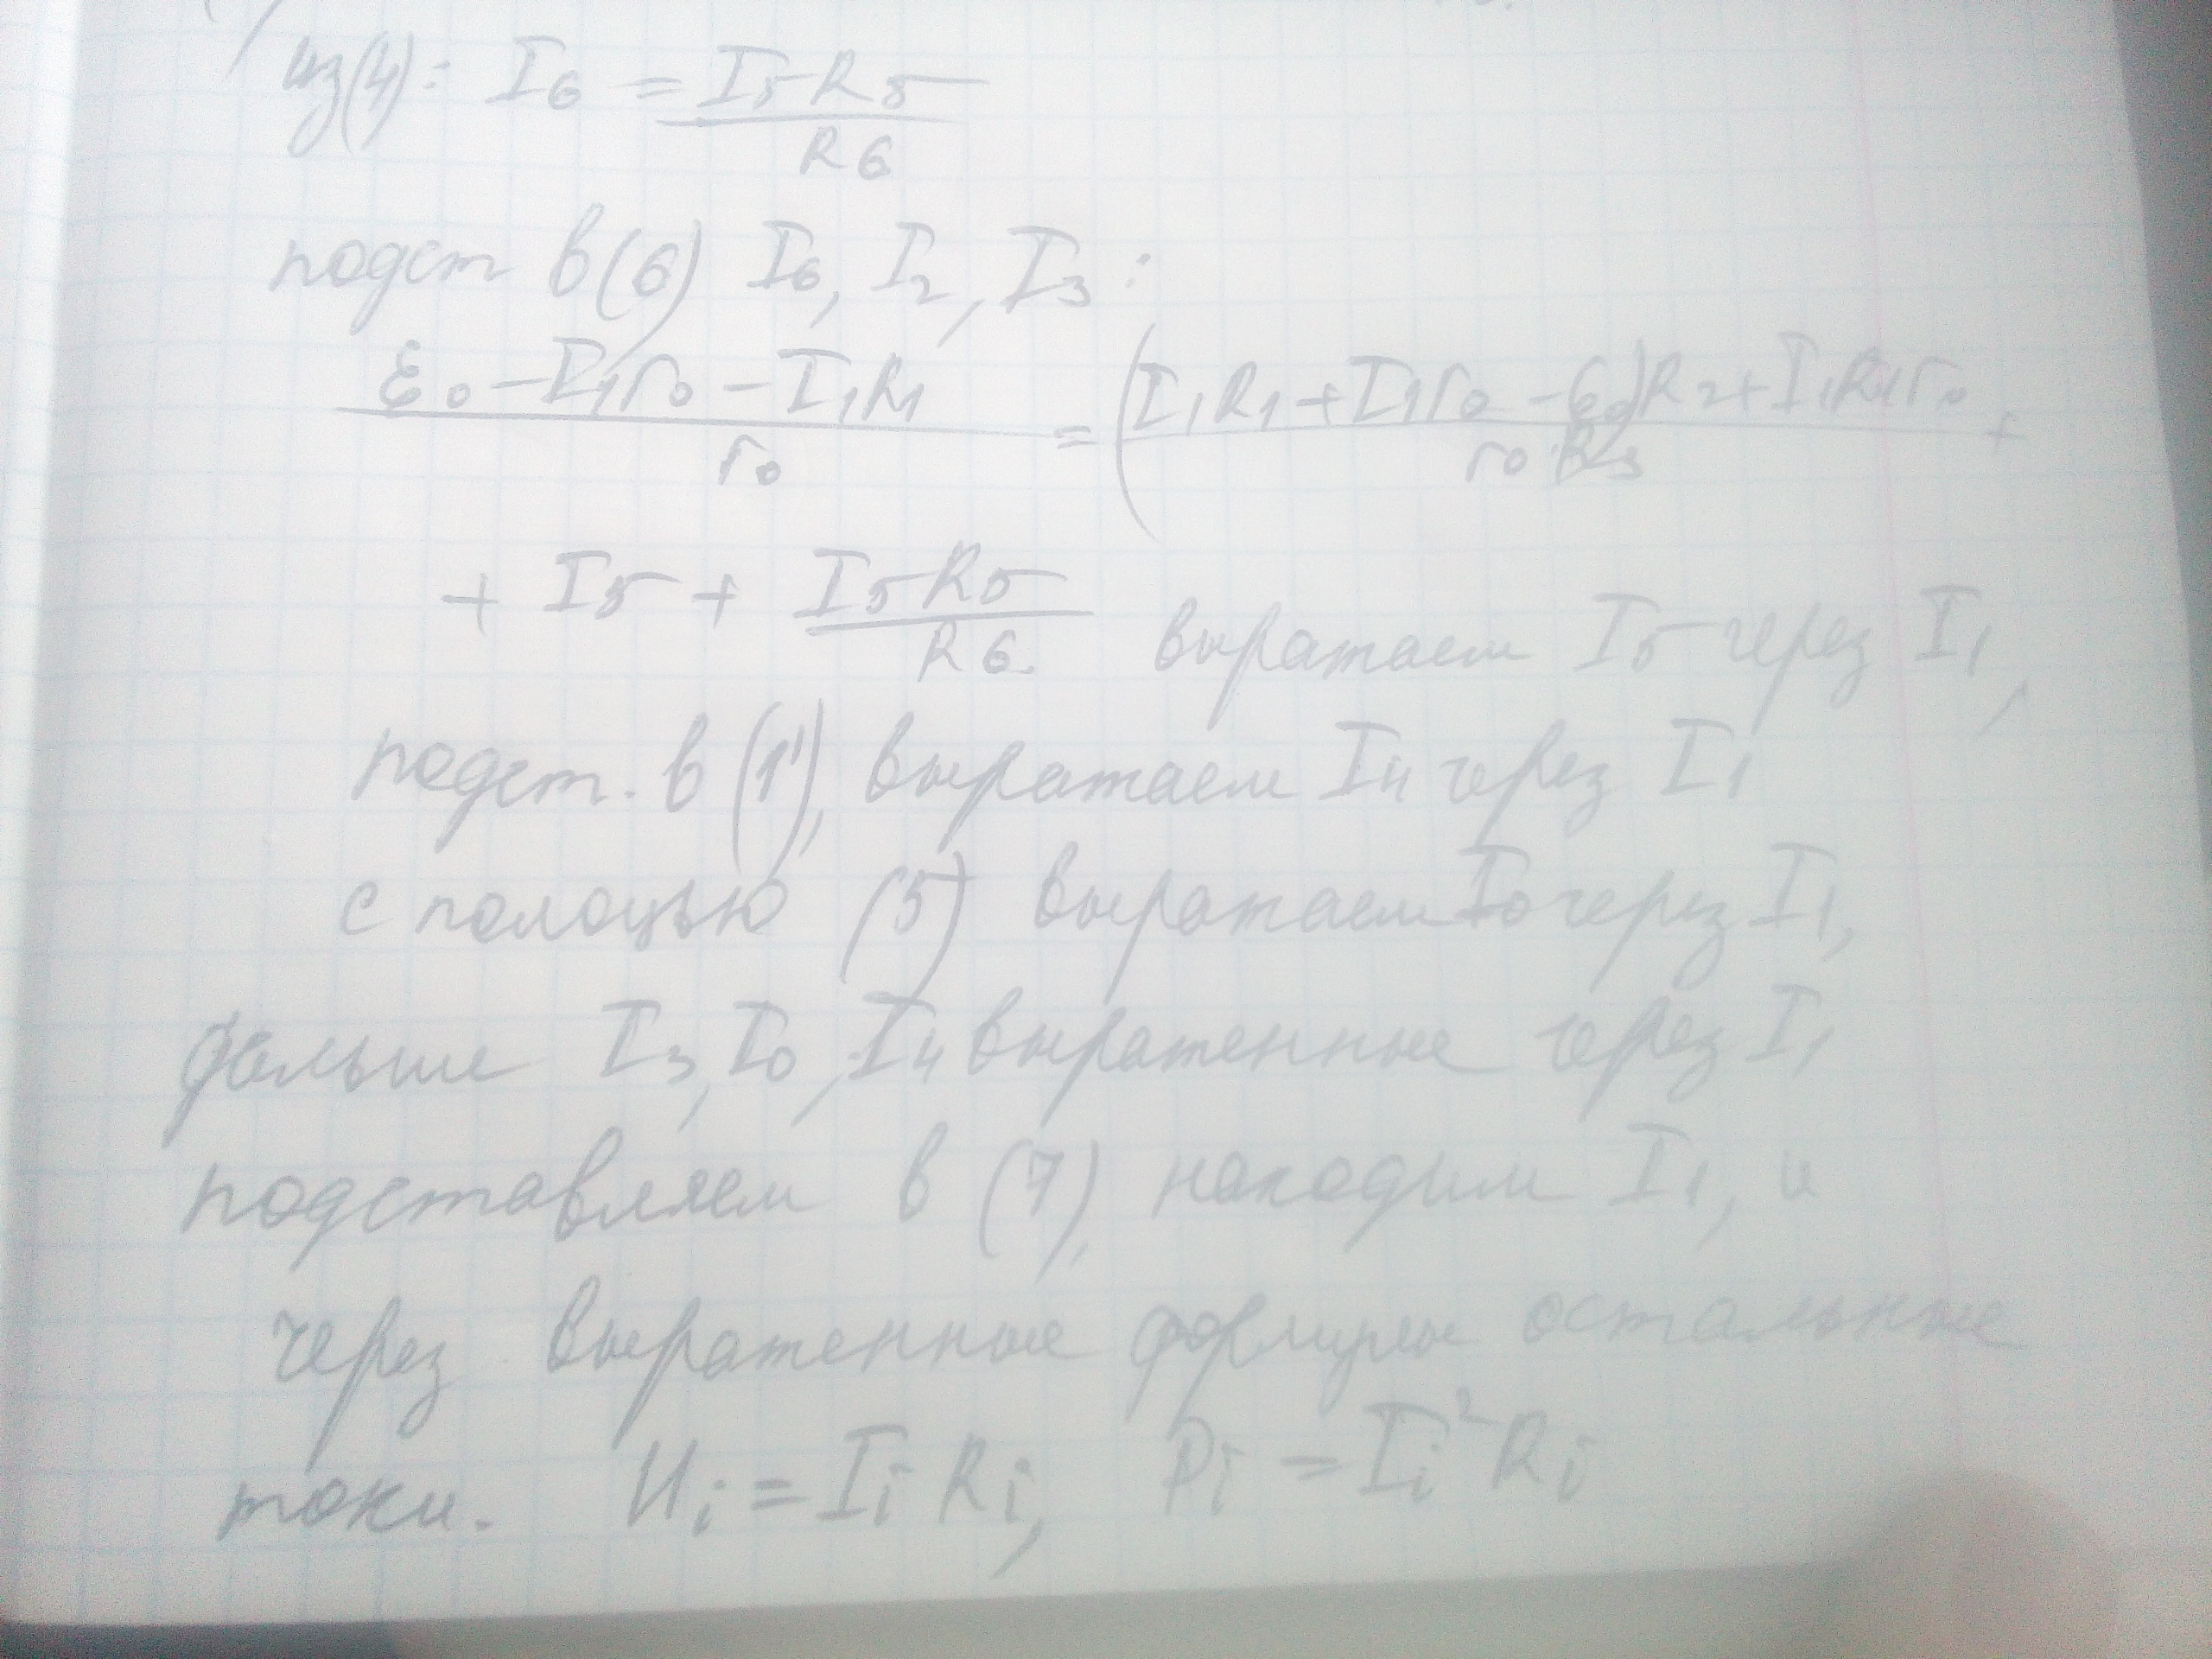 из(4): I6 = I5R5/R6
подст в(6) I6, I2, I3:
(ε0 – I1r0 – I1R1)/r0 = ((I1R1 + I1r0 – ε0)R2 + I1R1r0)/(r0 R3) +
+ I5 + I5R5/R6 выражаем I5 через I1,
подст. в (1'), выражаем I4 через I1
с помощью (5) выражаем I0 через I1,
дальше I3, I0, I4 выраженные через I1
подставляем в (7), находим I1, и
через выраженные формулы остальные
токи. Ui = Ii Ri, Pi = Ii² Ri